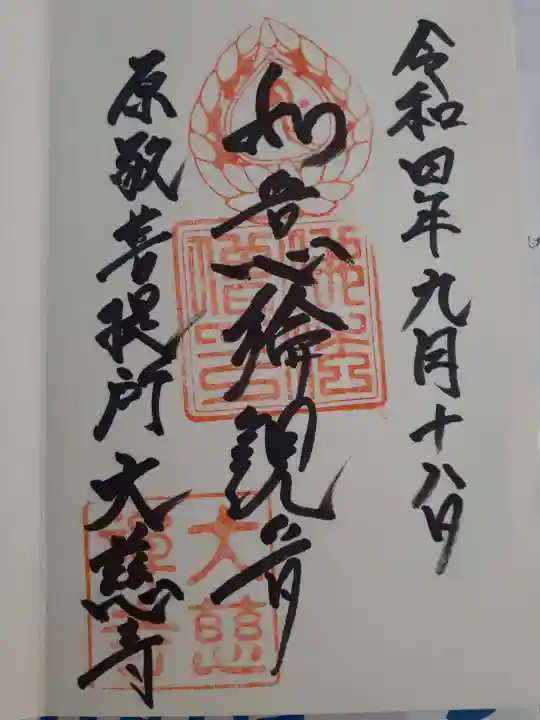 令和四年九月十八日
如意輪観音
原敬菩提所 大慈寺
佛法僧寶
大慈禅寺